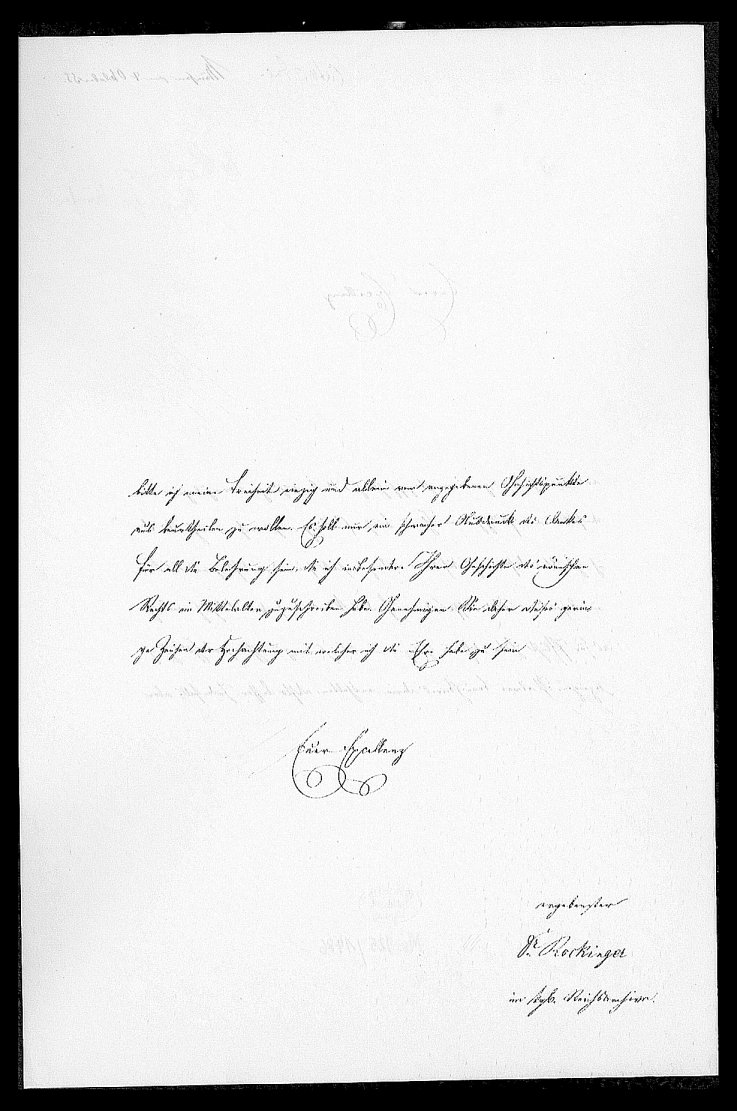 bitte ich meine Freiheit einzig und allein vom angegebenen Gesichtspunkte
aus beurtheilen zu wollen. Es soll nur ein schwacher Ausdruck des Dankes
für all die Belehrung sein, die ich insbesondere Ihrer Geschichte des römischen
Rechts im Mittelalter zuzuschreiben habe. Genehmigen Sie daher dieses gerin-
ge Zeichen der Hochachtung mit welcher ich die Ehre habe zu sein
Euer Excellenz
ergebenster
Dr. Rockinger
im kgb. Reichsarchive.